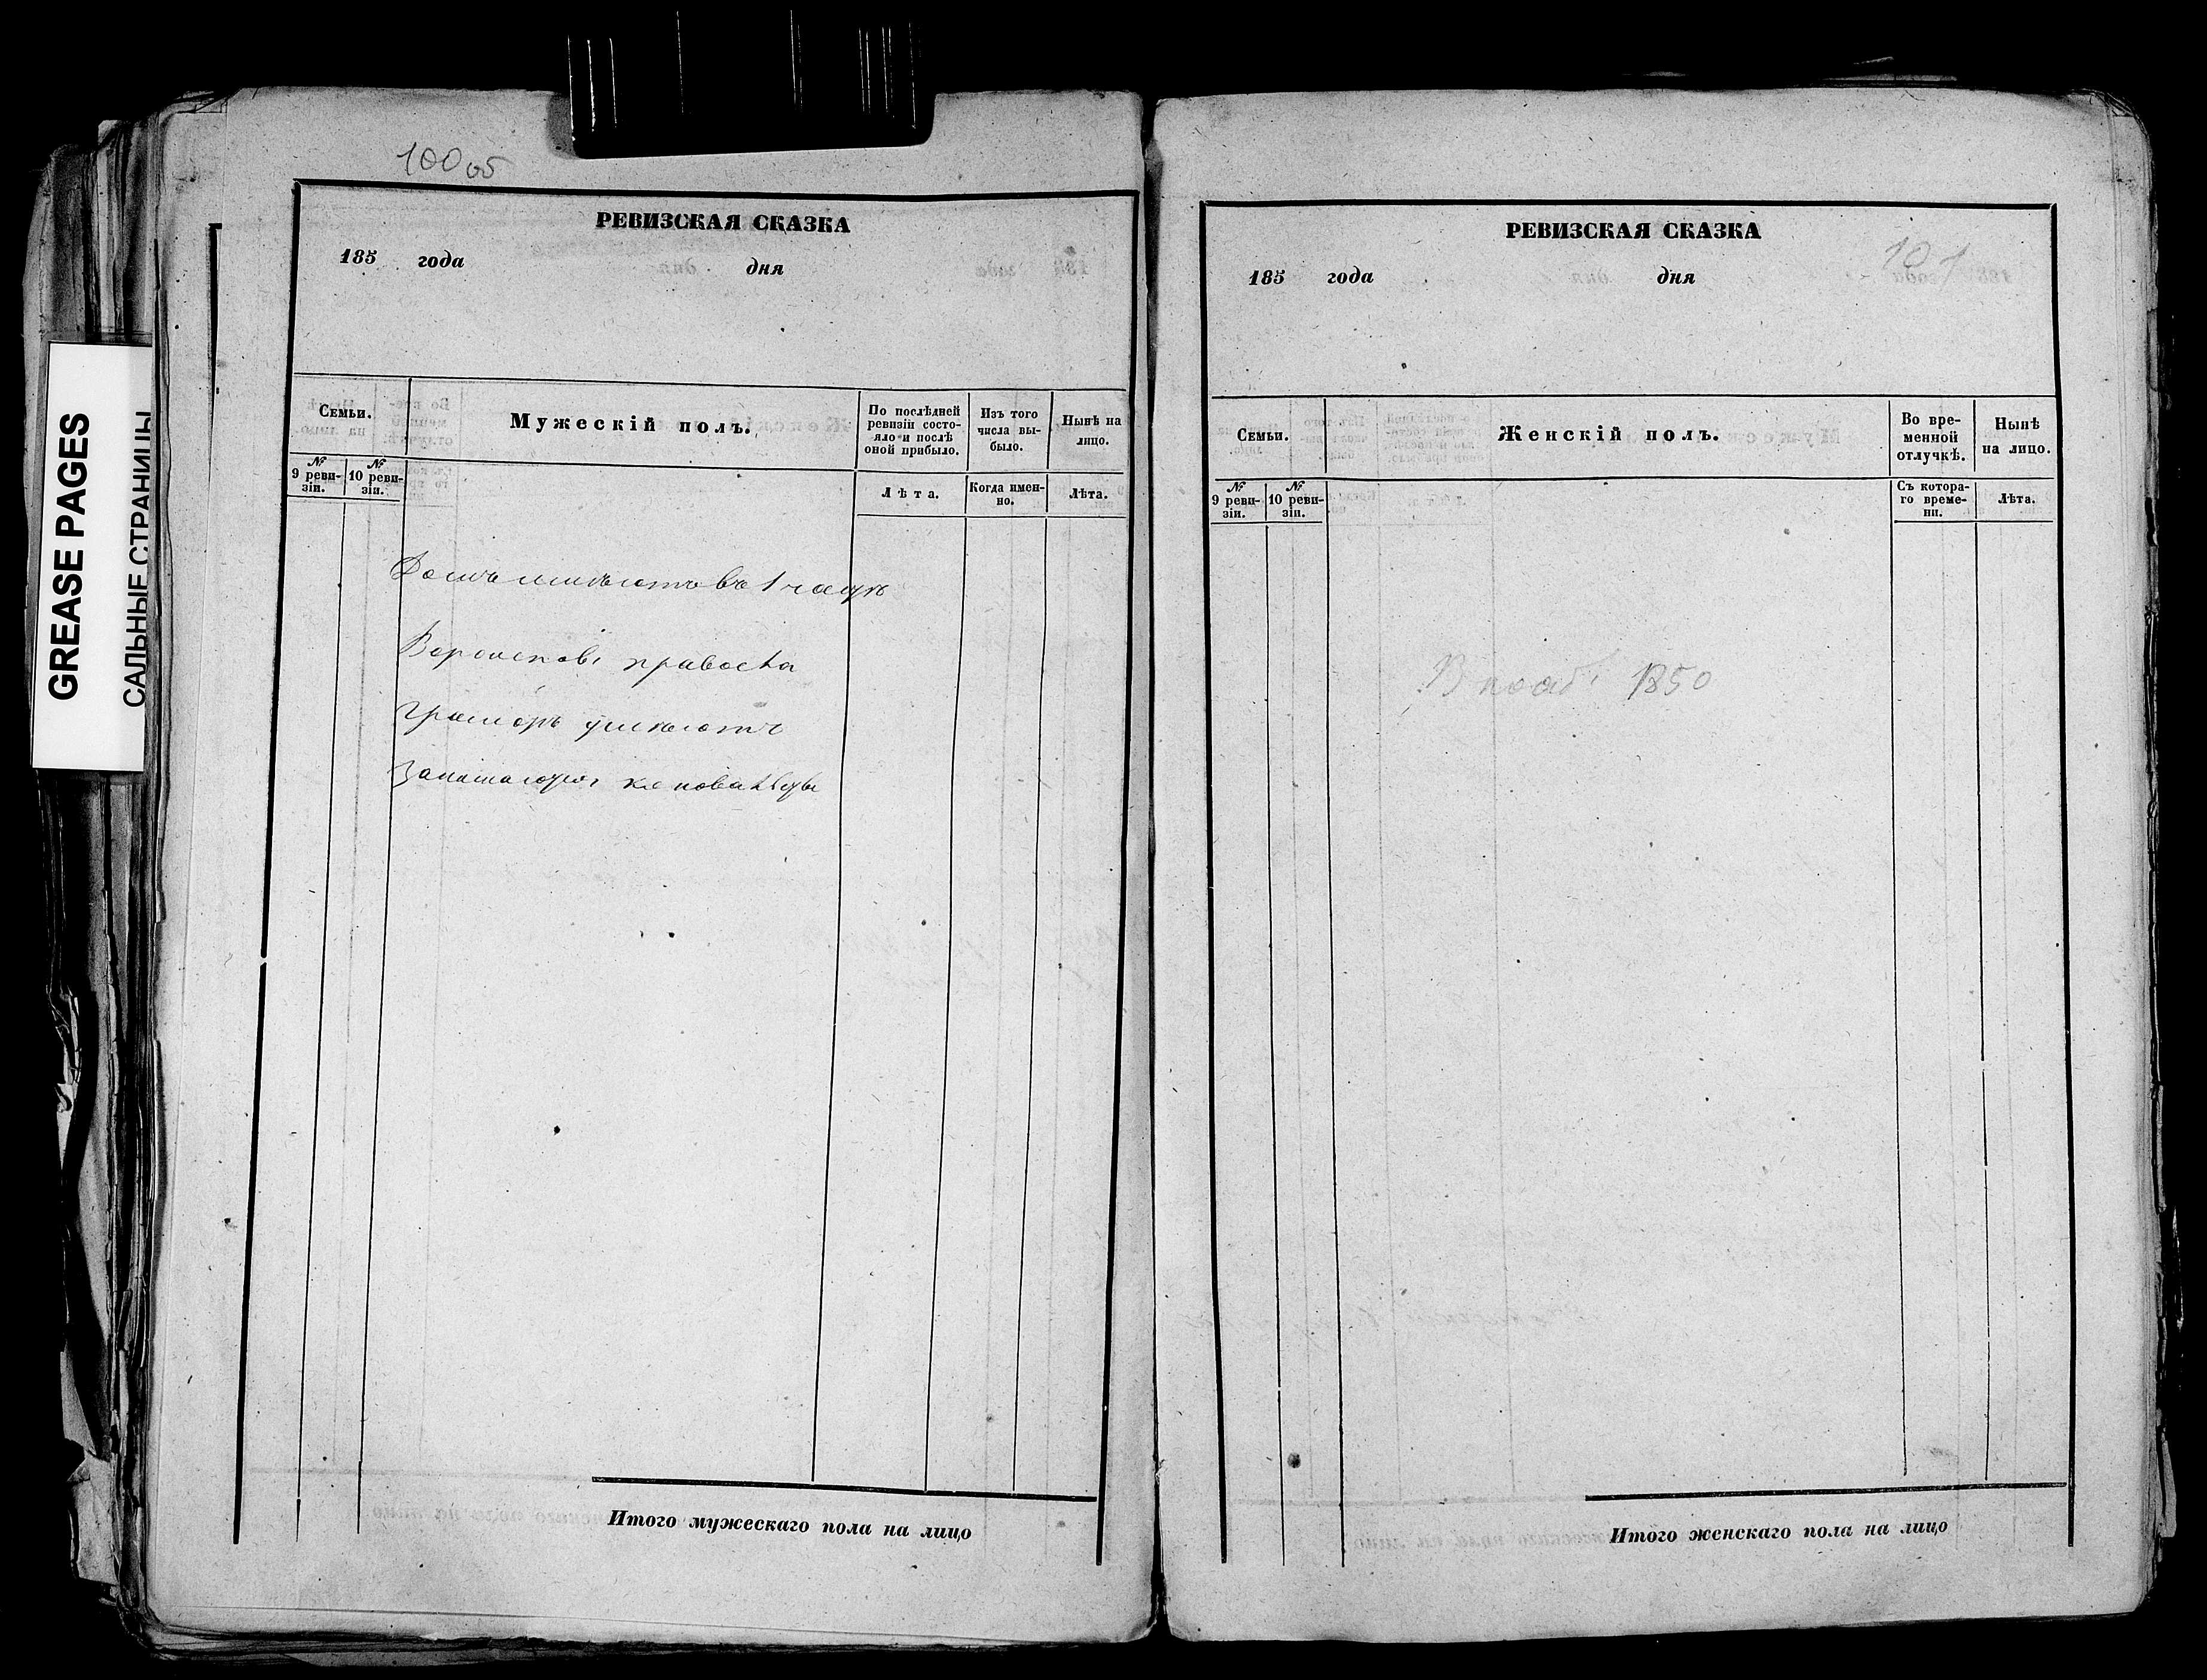 GREASE PAGES
САЛЬНЫЕ СТРАНИЦЫ
100 об
РЕВИЗСКАЯ СКАЗКА
185 года дня
Семьи.
Мужескій полъ.
По послѣдней ревизіи состояло и послѣ оной прибыло.
Изъ того числа выбыло.
Нынѣ на лицо.
№ 9 ревизіи.
№ 10 ревизіи.
Лѣта.
Когда именно.
Лѣта.
Домъ имѣютъ въ 1 части
грамотѣ умѣютъ
Итого мужескаго пола на лицо
101
РЕВИЗСКАЯ СКАЗКА
185 года дня
Семьи.
Женскій полъ.
Во временной отлучкѣ.
Нынѣ на лицо.
№ 9 ревизіи.
№ 10 ревизіи.
Съ котораго времени.
Лѣта.
1850
Итого женскаго пола на лицо